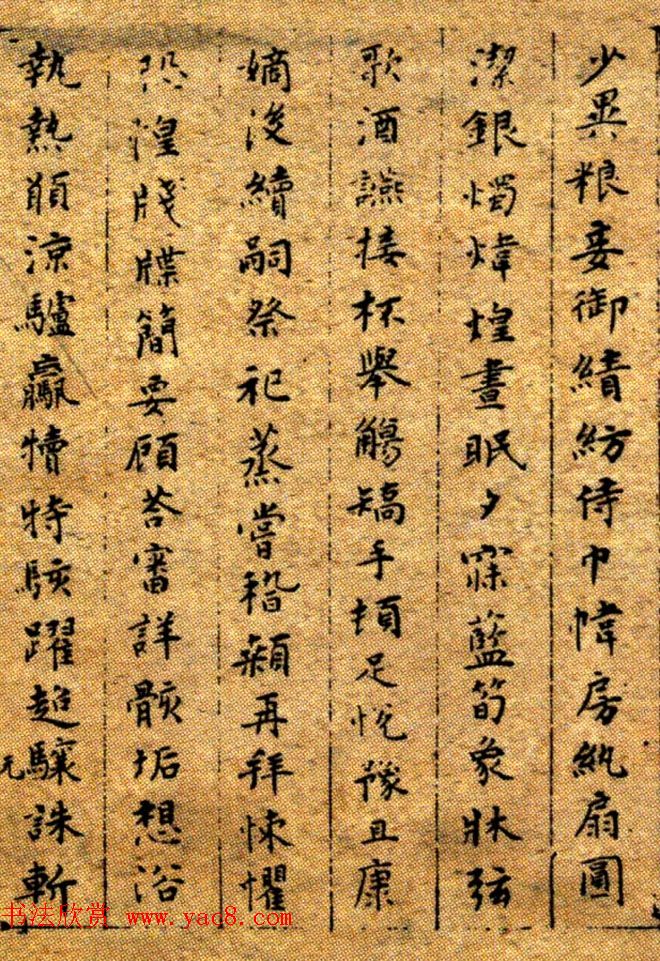 少異粮妾御績紡侍巾幃房紈扇圓
潔銀燭煒煌晝眠夕寐藍筍象牀弦
歌酒讌接杯舉觴矯手頓足悅豫且康
嫡後續嗣祭祀蒸嘗稽顙再拜悚懼
恐惶牋牒簡要顧荅審詳骸垢想浴
執熱願涼驢騾犢特駭躍超驤誅斬
書法欣赏 www.yac8.com